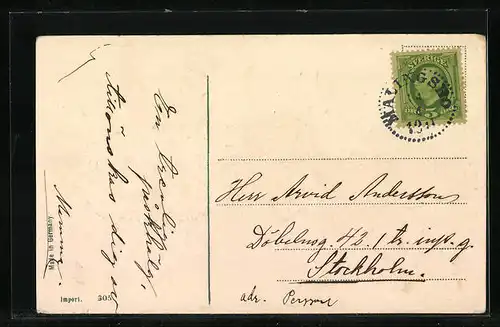 En treflig
påskhelg,
tillönskas dig av
Mamma.
Made in Germany
Import. 305
SVERIGE
MALINGSBO
1911
Herr Arvid Andersson
Döbelnsg. 42. 1 tr. inp. g.
Stockholm.
adr. Persson